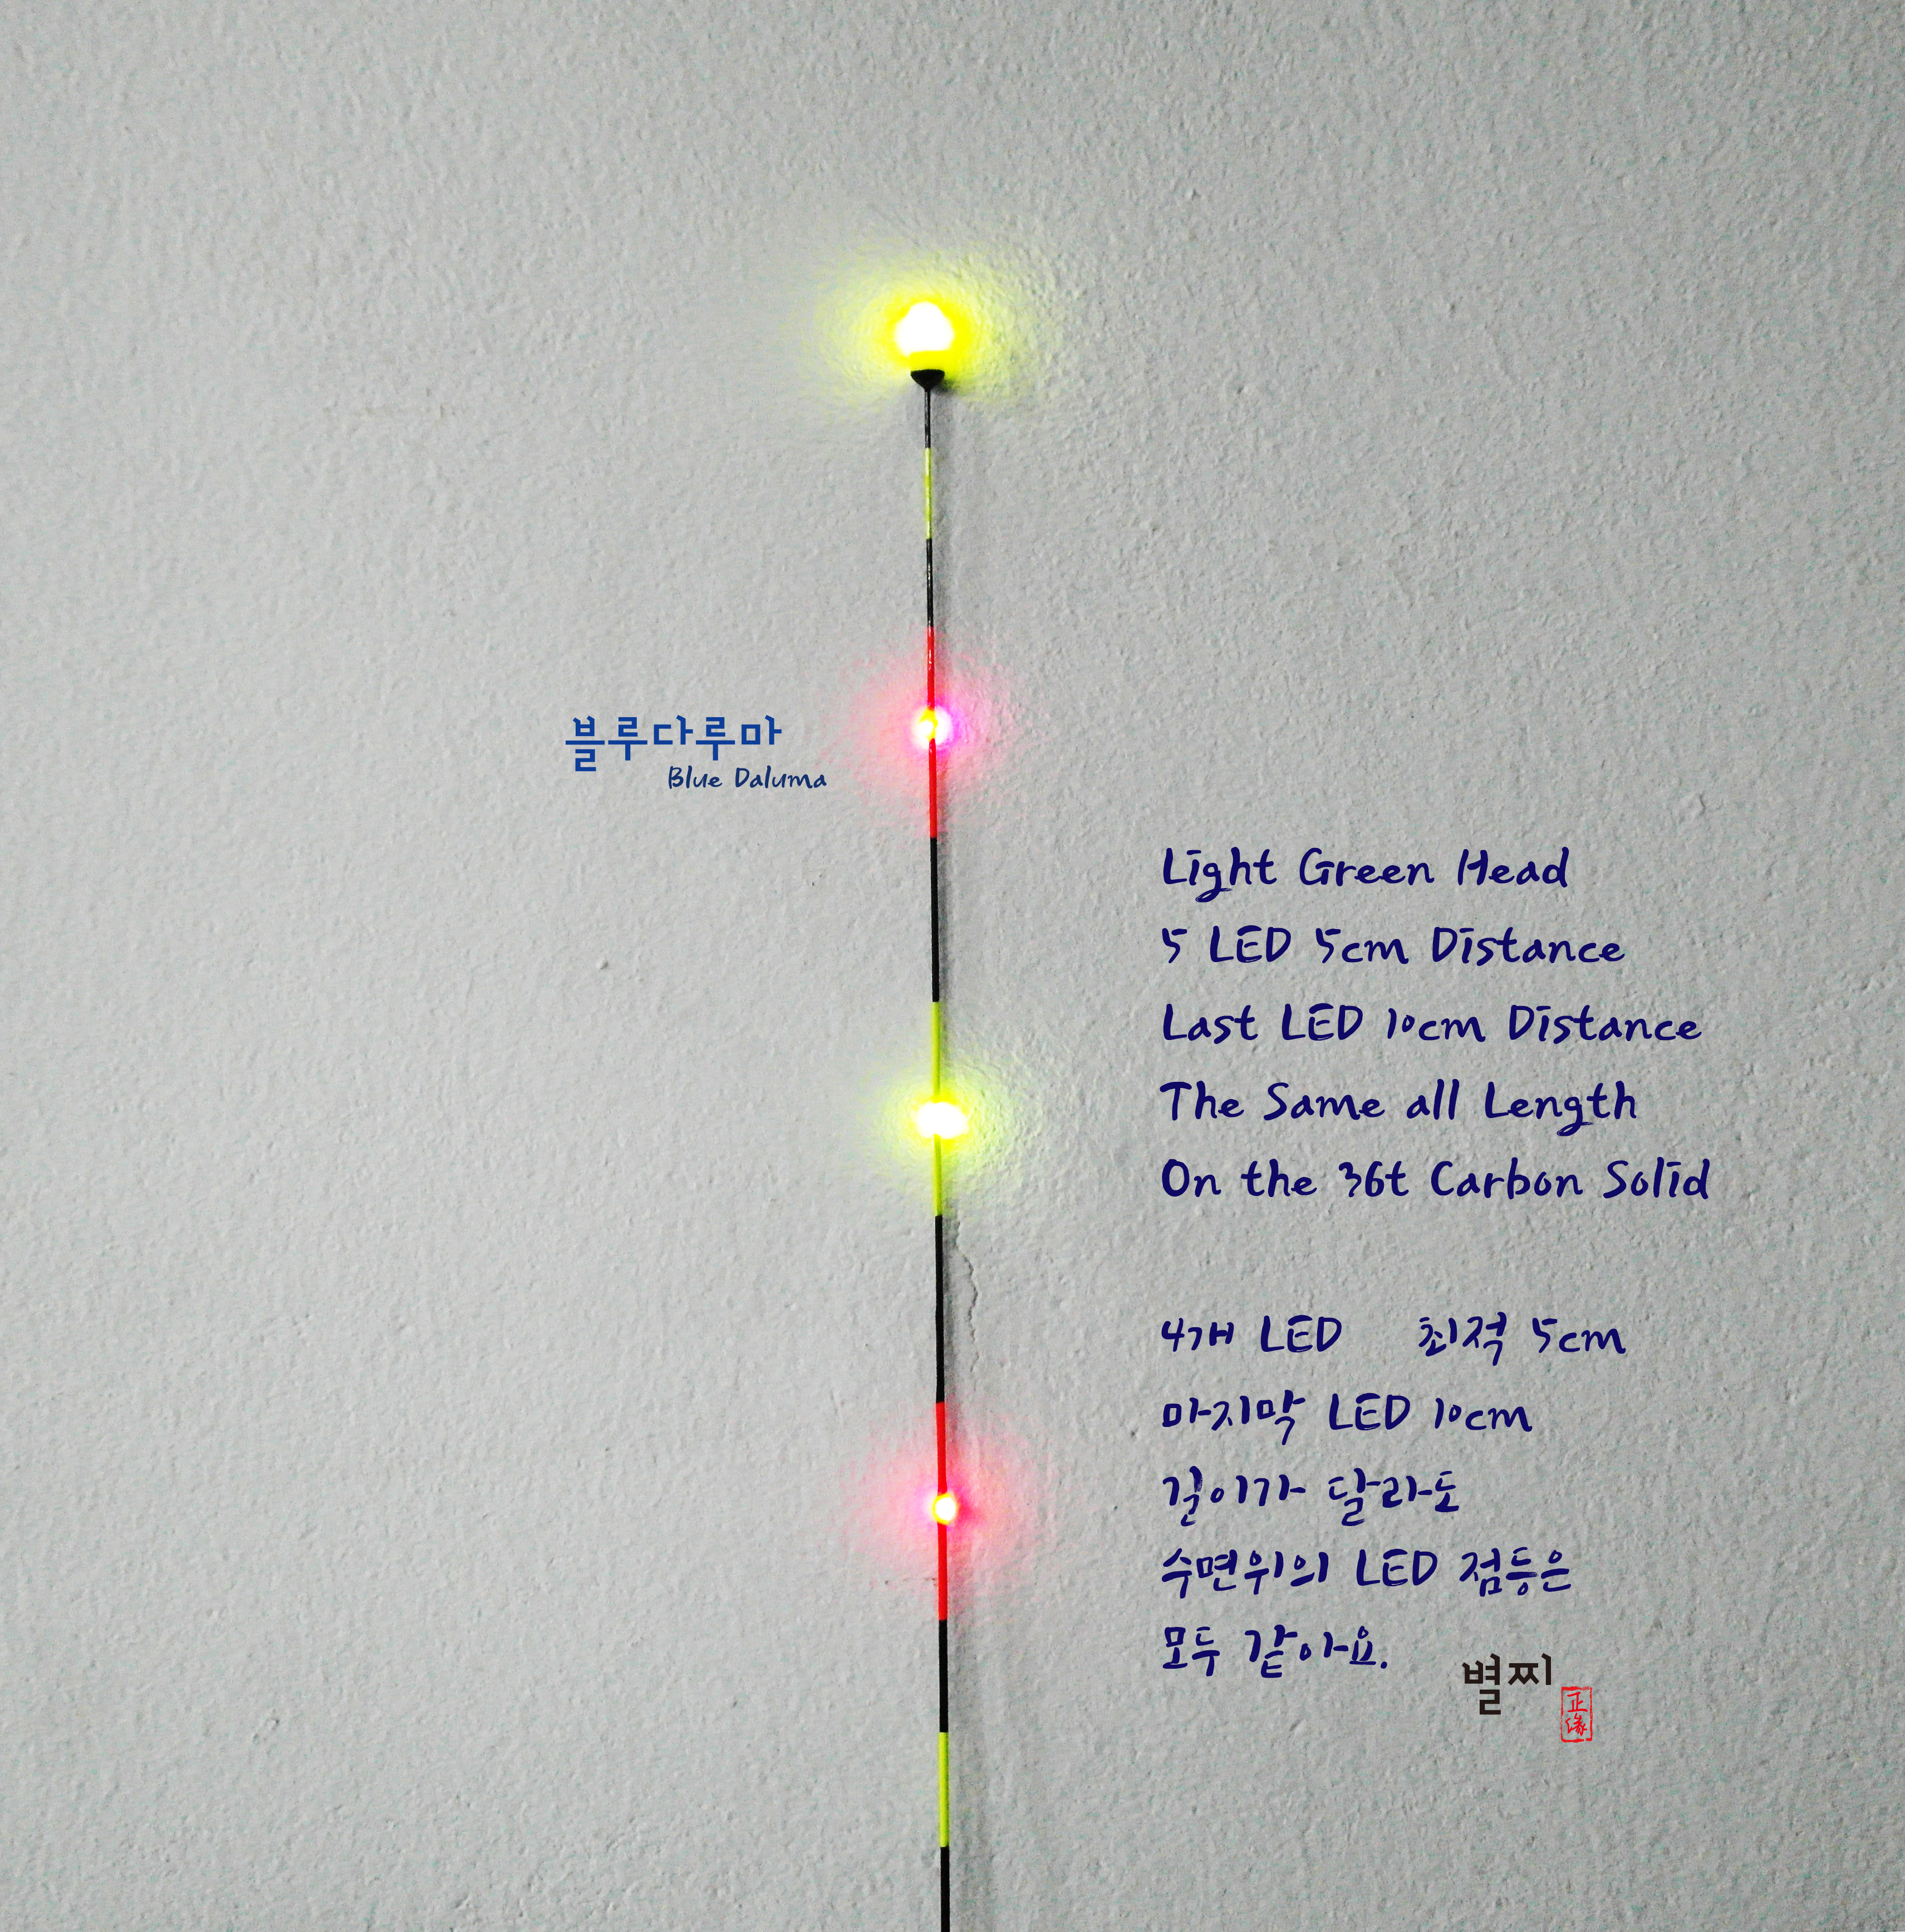 블루다루마
Blue Daluma
Light Green Head
5 LED 5cm Distance
Last LED 10cm Distance
The Same all Length
On the 36t Carbon Solid
4개 LED 최적 5cm
마지막 LED 10cm
길이가 달라도
수면위의 LED 점등은
모두 같아요.
별찌
正
緣